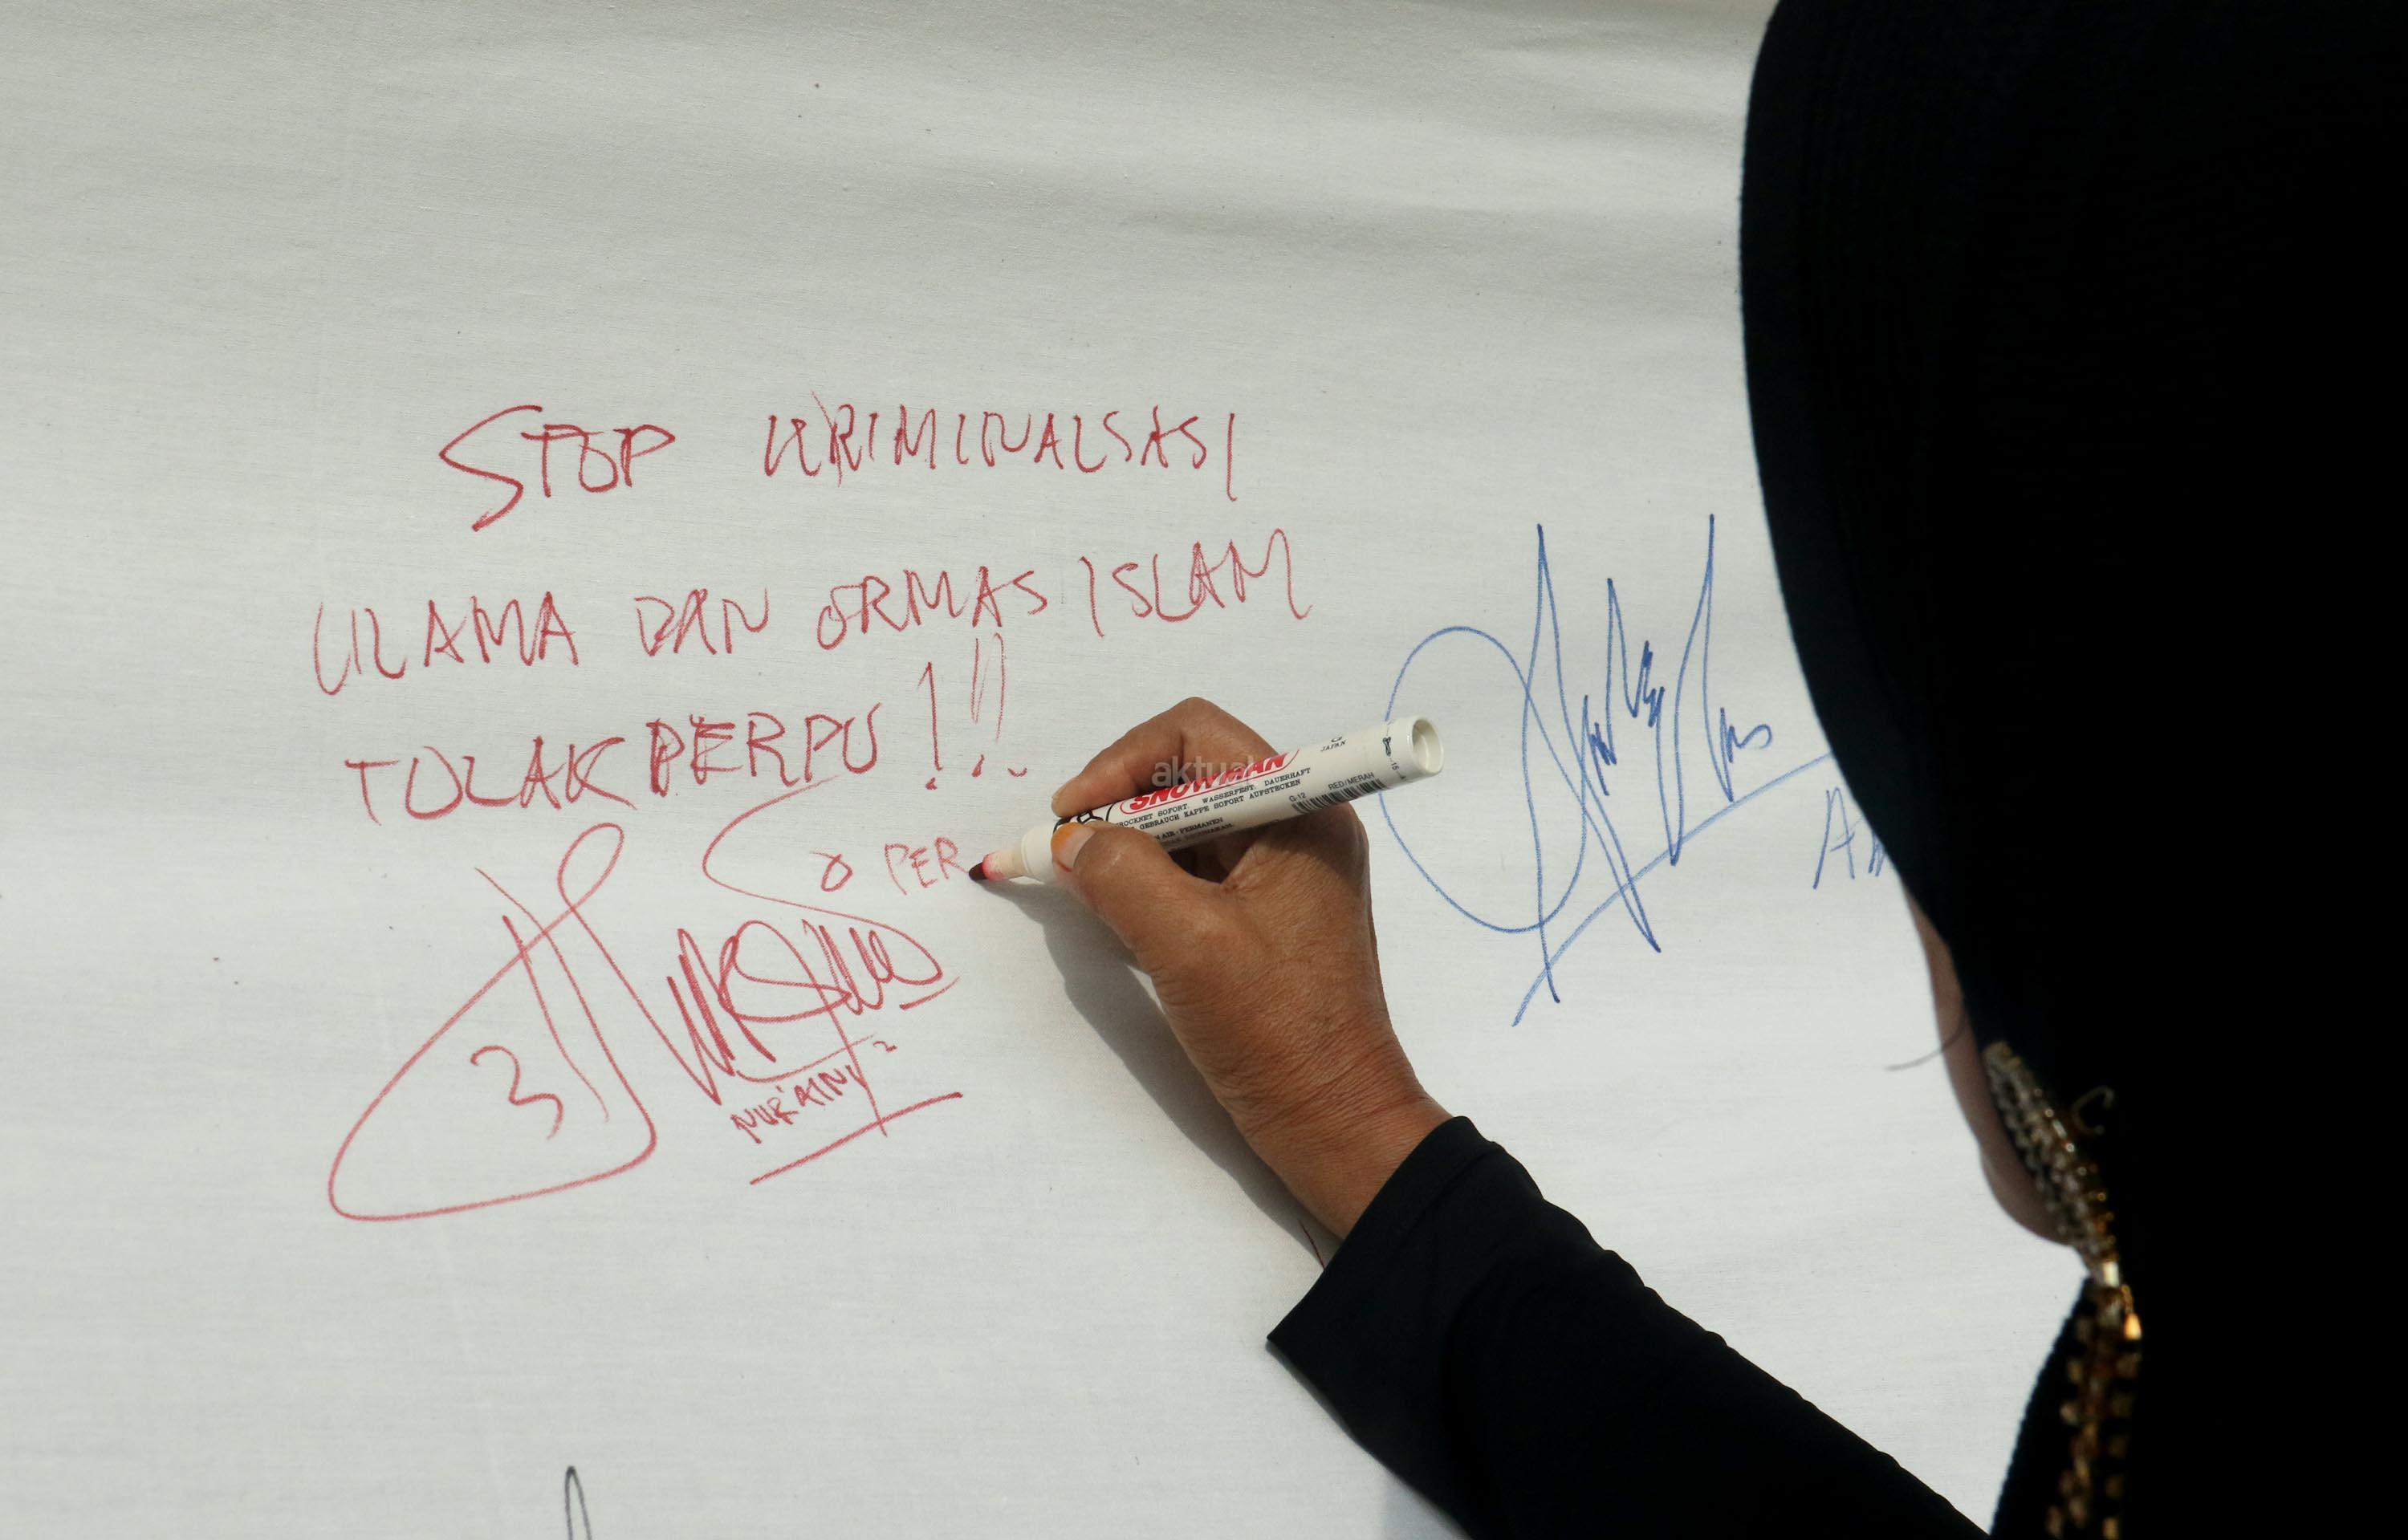 STOP KRIMINALSASI
ULAMA DAN ORMAS ISLAM
TOLAK PERPU!!!
PER
NUR'AINY
aktual
SNOWMAN
JAPAN
TROCKNET SOFORT. WASSERFEST. DAUERHAFT
GEBRAUCH KAPPE SOFORT AUFSTECKEN
G-12 RED/MERAH